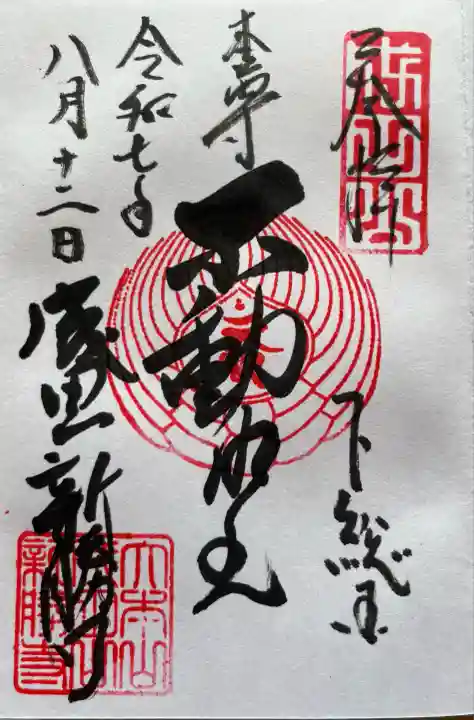 奉拝
下総国
本尊
不動明王
令和七年
八月十二日
成田山
新勝寺
大本山
成田山
新勝寺